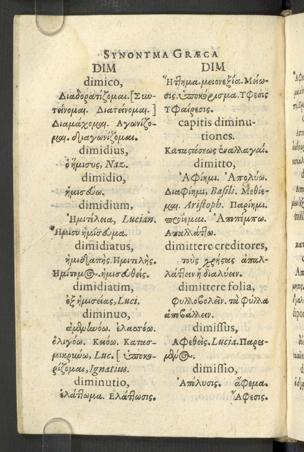 SYNONYMA GRÆCA
DIM
dimico,
Διαδορατίζομαι. [Συν-
τείνομαι. Διατείνομαι.
Διαμάχομαι. Ἀγωνίζο-
μαι. διαγωνίζομαι.
dimidius,
ὁ ἥμισυς, Naz.
dimidio,
ἡμισεύω.
dimidium,
Ἡμιτέλεια, Lucian.
Ἥμισυ ἡμίσευμα.
dimidiatus,
ἡμιδαπὴς. Ἡμιτελὴς.
Ἡμίτομος. ἡμισευθείς.
dimidiatim,
ἐξ ἡμισείας, Luci.
diminuo,
ἐλασσόω.
ὀλιγόω. Κολούω. Κατασ-
μικρύνω, Luc. [ὑποκο-
ρίζομαι, Ignatius.
diminutio,
ἐλάττωμα. Ἐλάττωσις.
DIM
Ἥττημα. μειονεξία. Μείω-
σις. ὑποκόρισμα. Ὕφεσις
Ὑφαίρεσις.
capitis diminu-
tiones.
Καταστάσεως ἐναλλαγαί.
dimitto,
Ἀφίημι. Ἀπολύω.
Διαφίημι, Basili. Μεθίε-
μαι, Aristoph. Παρίημι.
περίημαι. Ἀποπέμπω.
Ἀπαλλάττω.
dimittere creditores,
τοὺς χρήστας ἀπαλ-
λάττειν ἢ διαλύειν.
dimittere folia,
Φυλλοβολεῖν. τὰ φύλλα
ἀποβάλλειν.
dimissus,
Ἀφεθείς. Lucia. Παρει-
μένος.
dimissio,
Ἀπόλυσις. ἄφεμα.
Ἄφεσις.